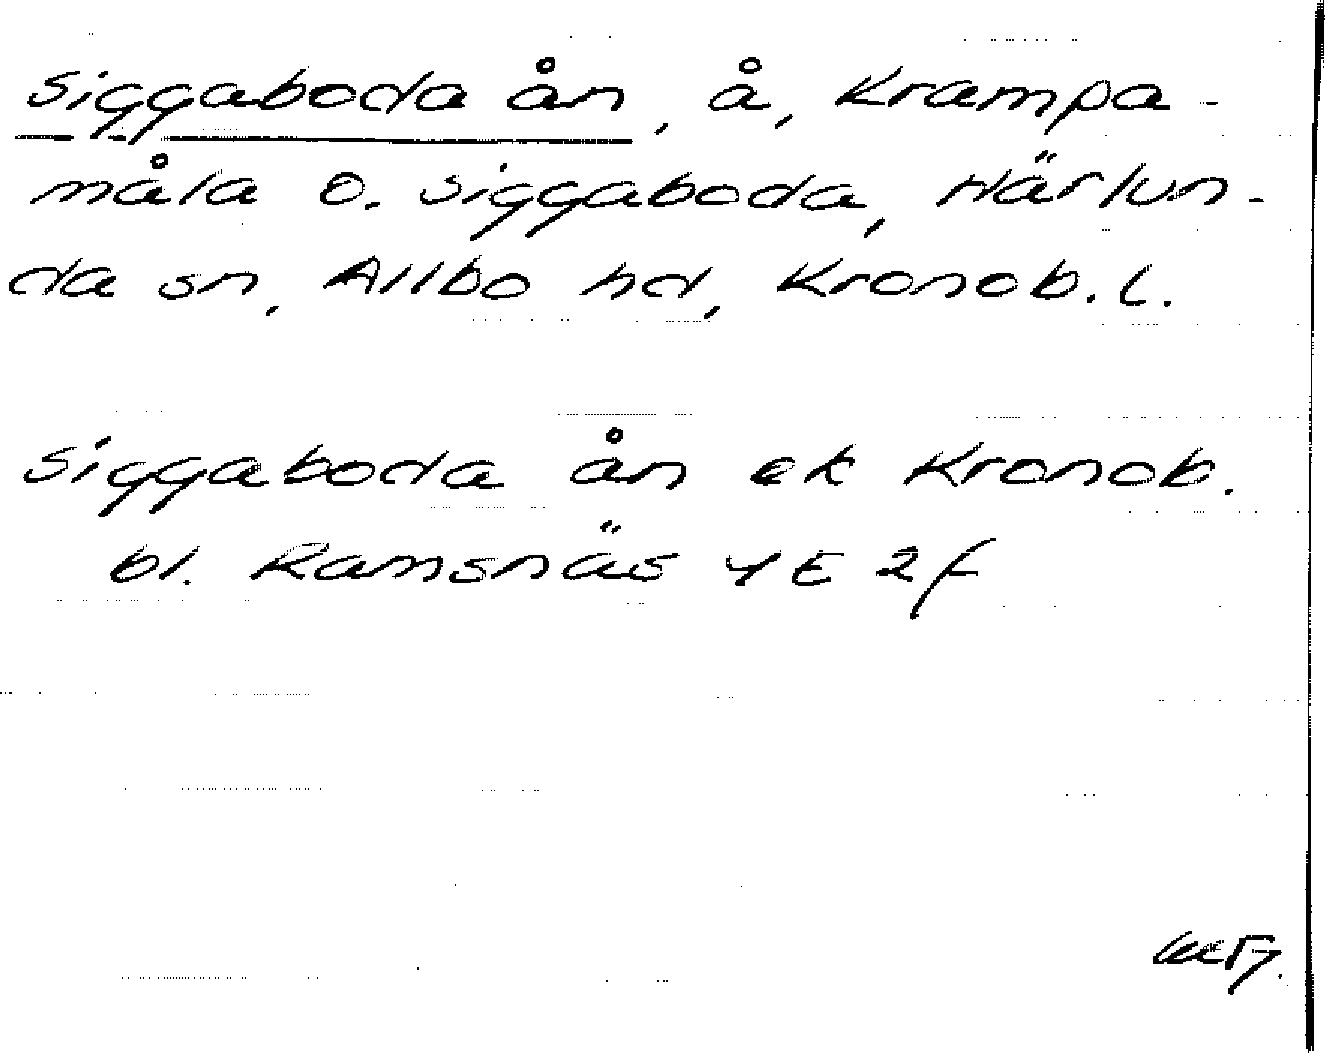 Siggaboda ån, å, Krampa-
måla o. Siggaboda, Härlun-
da sn, Allbo hd, Kronob. l.
Siggaboda ån ek Kronob.
bl. Ramsnäs 4E 2f